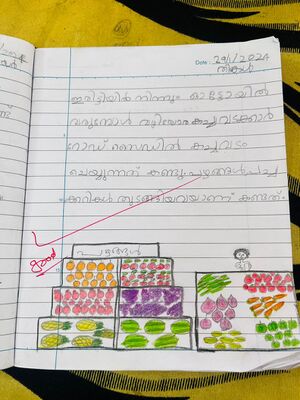 Date: 29/1/2024
തിങ്കൾ
ഇരിട്ടിയിൽ നിന്നും ഓട്ടോയിൽ
വരുമ്പോൾ വഴിയോരകച്ചവടക്കാർ
റോഡ് സൈഡിൽ കച്ചവടം
ചെയ്യുന്നത് കണ്ടു. പഴങ്ങൾ, പച്ച
ക്കറികൾ തുടങ്ങിയവയാണ് കണ്ടത്.
good
പഴങ്ങൾ